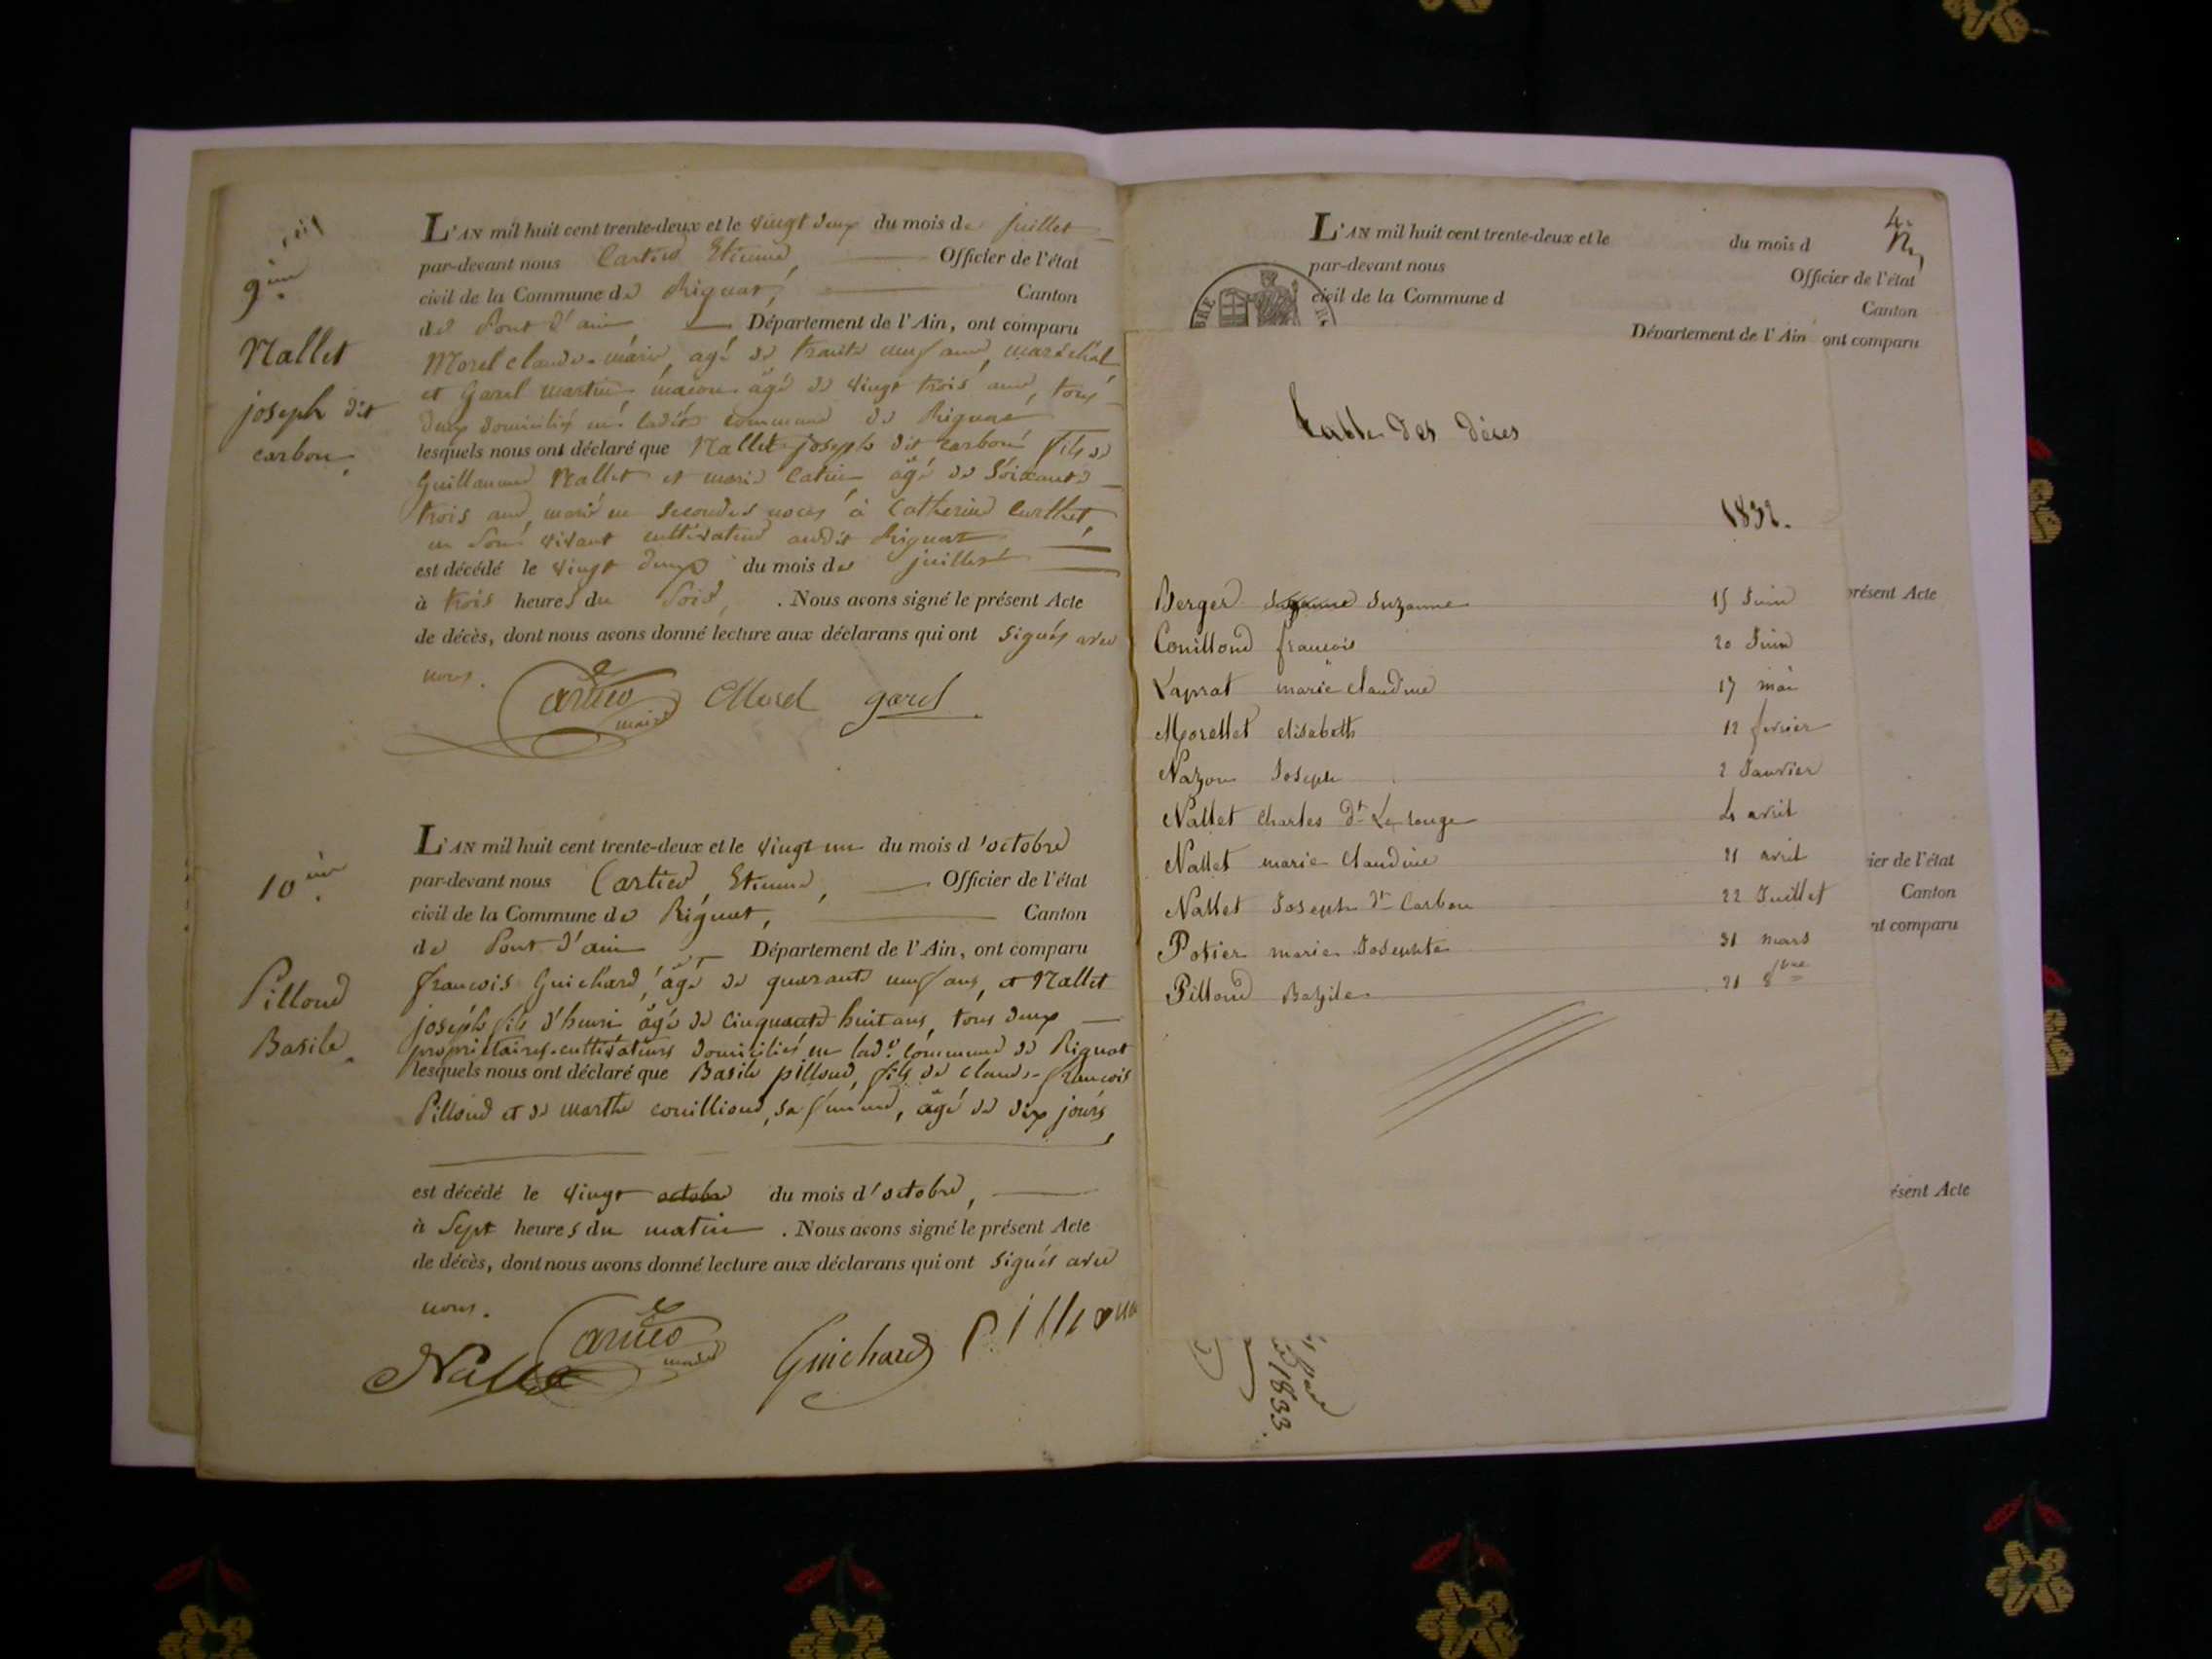 9ème
Nallet
joseph dit
carbon.
L'AN mil huit cent trente-deux et le vingt deux du mois de juillet
par-devant nous Cartier Etienne, Officier de l'état
civil de la Commune de Rignat, Canton
de Pont d'ain Département de l'Ain, ont comparu
Morel claude-marie, agé de trante neuf ans, maréchal
et Garel martin maçon âgé de vingt trois ans, tous
deux domiciliés en ladite commune de Rignat
lesquels nous ont déclaré que Nallet joseph dit carbon fils de
Guillaume Nallet et marie Catin âgé de soixante
trois ans, marié en secondes noces à Catherine Curthet,
en son vivant cultivateur audit Rignat
est décédé le vingt deux du mois de juillet
à trois heures du soir, . Nous avons signé le présent Acte
de décès, dont nous avons donné lecture aux déclarans qui ont signés avec
nous.
Cartier maire CMorel garel
10ème
Pilloud
Basile.
L'AN mil huit cent trente-deux et le vingt un du mois d'octobre
par-devant nous Cartier, Etienne, Officier de l'état
civil de la Commune de Rignat, Canton
de Pont d'ain Département de l'Ain, ont comparu
françois Guichard, âgé de quarante neuf ans, et Nallet
joseph fils d'henri âgé de cinquante huit ans, tous deux
propriétaires-cultivateurs domiciliés en lade commune de Rignat
lesquels nous ont déclaré que Basile pilloud, fils de claude-françois
Pilloud et de marthe couillioud, sa femme, âgé de dix jours,
est décédé le vingt octobre du mois d'octobre,
à sept heures du matin . Nous avons signé le présent Acte
de décès, dont nous avons donné lecture aux déclarans qui ont signés avec
nous.
Nallet Cartier maire Guichard
L'AN mil huit cent trente-deux et le du mois d
par-devant nous Officier de l'état
civil de la Commune d Canton
Département de l'Ain ont comparu
Table des décès
1832.
Berger Suzanne Suzanne 15 Juin
Couilloud françois 20 Juin
Laprat marie claudine 17 mai
Morellet elisabeth 12 fevrier
Nazon Joseph 2 Janvier
Nallet charles dt Le rouge 4 avril
Nallet marie Claudine 21 avril
Nallet Joseph dt Carbon 22 Juillet
Potier marie Josephte 31 mars
Pilloud Bazile 21 8bre
présent Acte
ier de l'état
Canton
nt comparu
ésent Acte
1833.